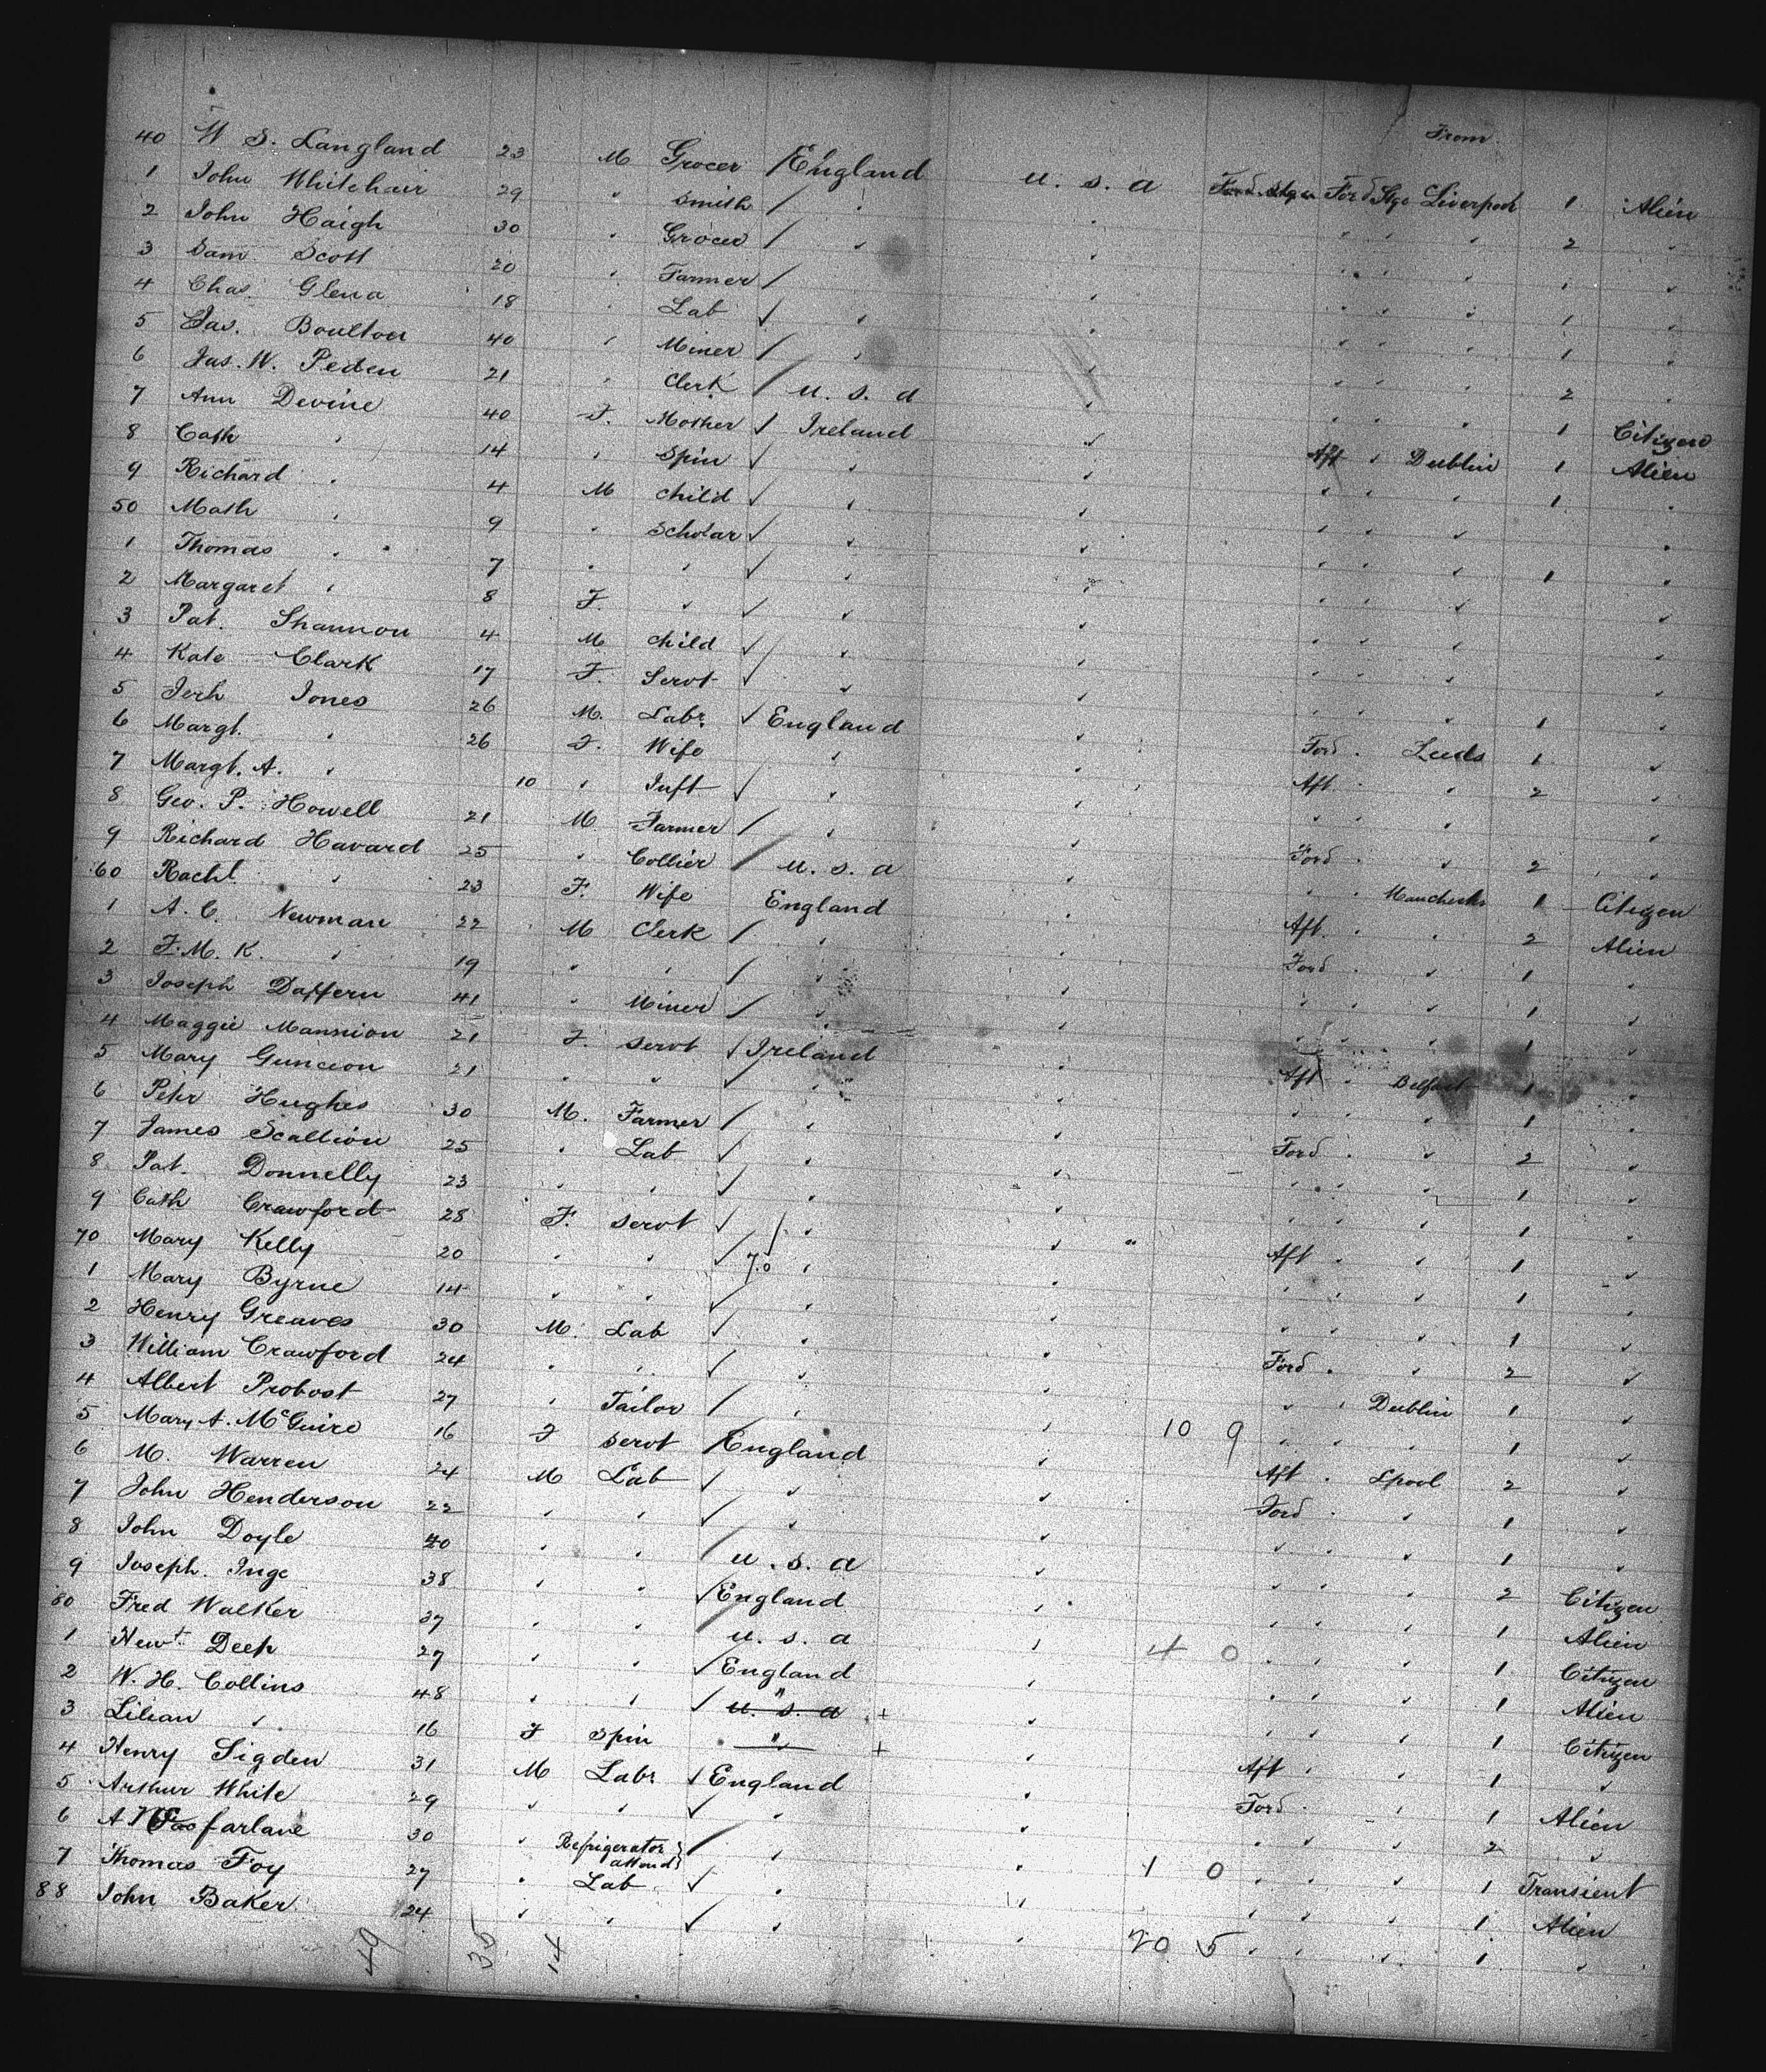 From
40 W S. Langland 23 M Grocer / England U.S.A Ford Stge Liverpool 1 Alien
1 John Whitehair 29 " Smith / " " " " " 2 "
2 John Haigh 30 " Grocer / " " " " " 1 "
3 Sam Scott 20 " Farmer / " " " " 1 "
4 Chas. Glena 18 " Lab ✓ " " " " " 1 "
5 Jas. Boulton 40 " Miner / " " " " " 2 "
6 Jas. W. Peden 21 " Clerk / U.S.A " " " " 1 Citizen
7 Ann Devine 40 F. Mother ✓ Ireland " Aft " Dublin 1 Alien
8 Cath " 14 " Spin ✓ " " " " " 1 "
9 Richard " 4 M child ✓ " " " " " "
50 Math " 9 " Scholar ✓ " " " " " 1 "
1 Thomas " 7 " " ✓ " " " " " "
2 Margaret " 8 F. " ✓ " " " " " "
3 Pat. Shannon 4 M child ✓ " " " " " "
4 Kate Clark 17 F. Servt ✓ " " " " " 1 "
5 Jerh Jones 26 M. Labr ✓ England " Ford " Leeds 1 "
6 Margt. " 26 F. Wife " " Aft " " 2 "
7 Margt. A. " 10 " Inft ✓ " " " " " "
8 Geo. P. Howell 21 M Farmer / " " Ford " " 2 "
9 Richard Havard 25 " Collier / U.S.A " " " Manchester 1 Citizen
60 Rachl. " 23 F. Wife England " Aft. " " 2 Alien
1 A. C. Newman 22 M Clerk / " " Ford " " 1 "
2 F. M. K. " 19 " " / " " " " " 1 "
3 Joseph Daffern 41 " Miner / " " " " " 1 "
4 Maggie Mannion 21 F. Servt ✓ Ireland " Aft " Belfast 1 "
5 Mary Guncion 21 " " ✓ " " " " " 1 "
6 Peter Hughes 30 M. Farmer / " " Ford " " 2 "
7 James Scallion 25 " Lab ✓ " " " " " 1 "
8 Pat. Donnelly 23 " " ✓ " " " " " 1 "
9 Cath Crawford 28 F. Servt ✓ " " Aft " " 1 "
70 Mary Kelly 20 " " ✓ 70 " " " " " 1 "
1 Mary Byrne 14 " " ✓ " " " " " 1 "
2 Henry Greaves 30 M. Lab ✓ " " Ford " " 2 "
3 William Crawford 24 " " ✓ " " " " Dublin 1 "
4 Albert Probost 27 " Tailor / " " 10 9 " " " 1 "
5 Mary A. McGuire 16 F Servt / England " Aft " Lpool 2 "
6 M. Warren 24 M Lab / " " Ford " " 1 "
7 John Henderson 22 " " ✓ " " " " " 1 "
8 John Doyle 40 " " / U.S.A " " " " 2 Citizen
9 Joseph. Inge 38 " " ✓ England " " " " 1 Alien
80 Fred Walker 37 " " / U.S.A " 4 0 " " " 1 Citizen
1 Newt Deep 27 " " ✓ England " " " " 1 Alien
2 W. H. Collins 48 " " ✓ U.S.A " + " " " " 1 Citizen
3 Lilian " 16 F Spin " + " Aft " " 1 "
4 Henry Sigden 31 M Labr ✓ England " Ford " " 1 Alien
5 Arthur White 29 " " ✓ " " " " " 2 "
6 A farlane 30 " Refrigerator attend / " " 1 0 " " " 1 Transient
7 Thomas Foy 27 " Lab ✓ " " " " " 1 Alien
88 John Baker 24 " " ✓ " " 20 5 " " " 1 "
49 35 14